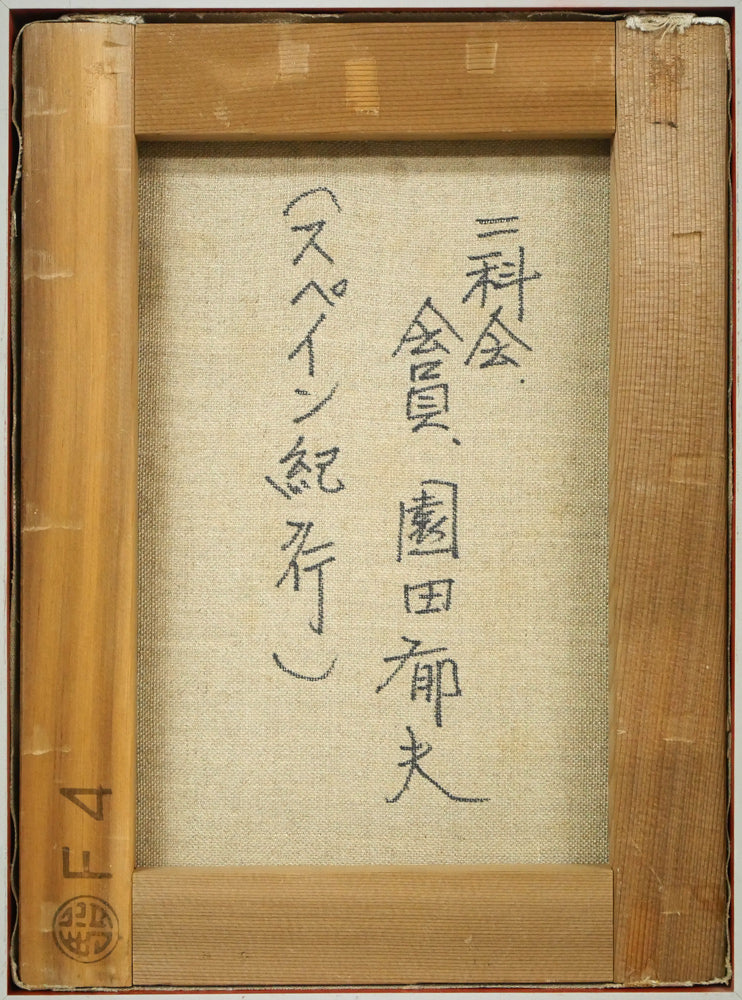 二科会.
会員、園田郁夫
(スペイン紀行)
F4